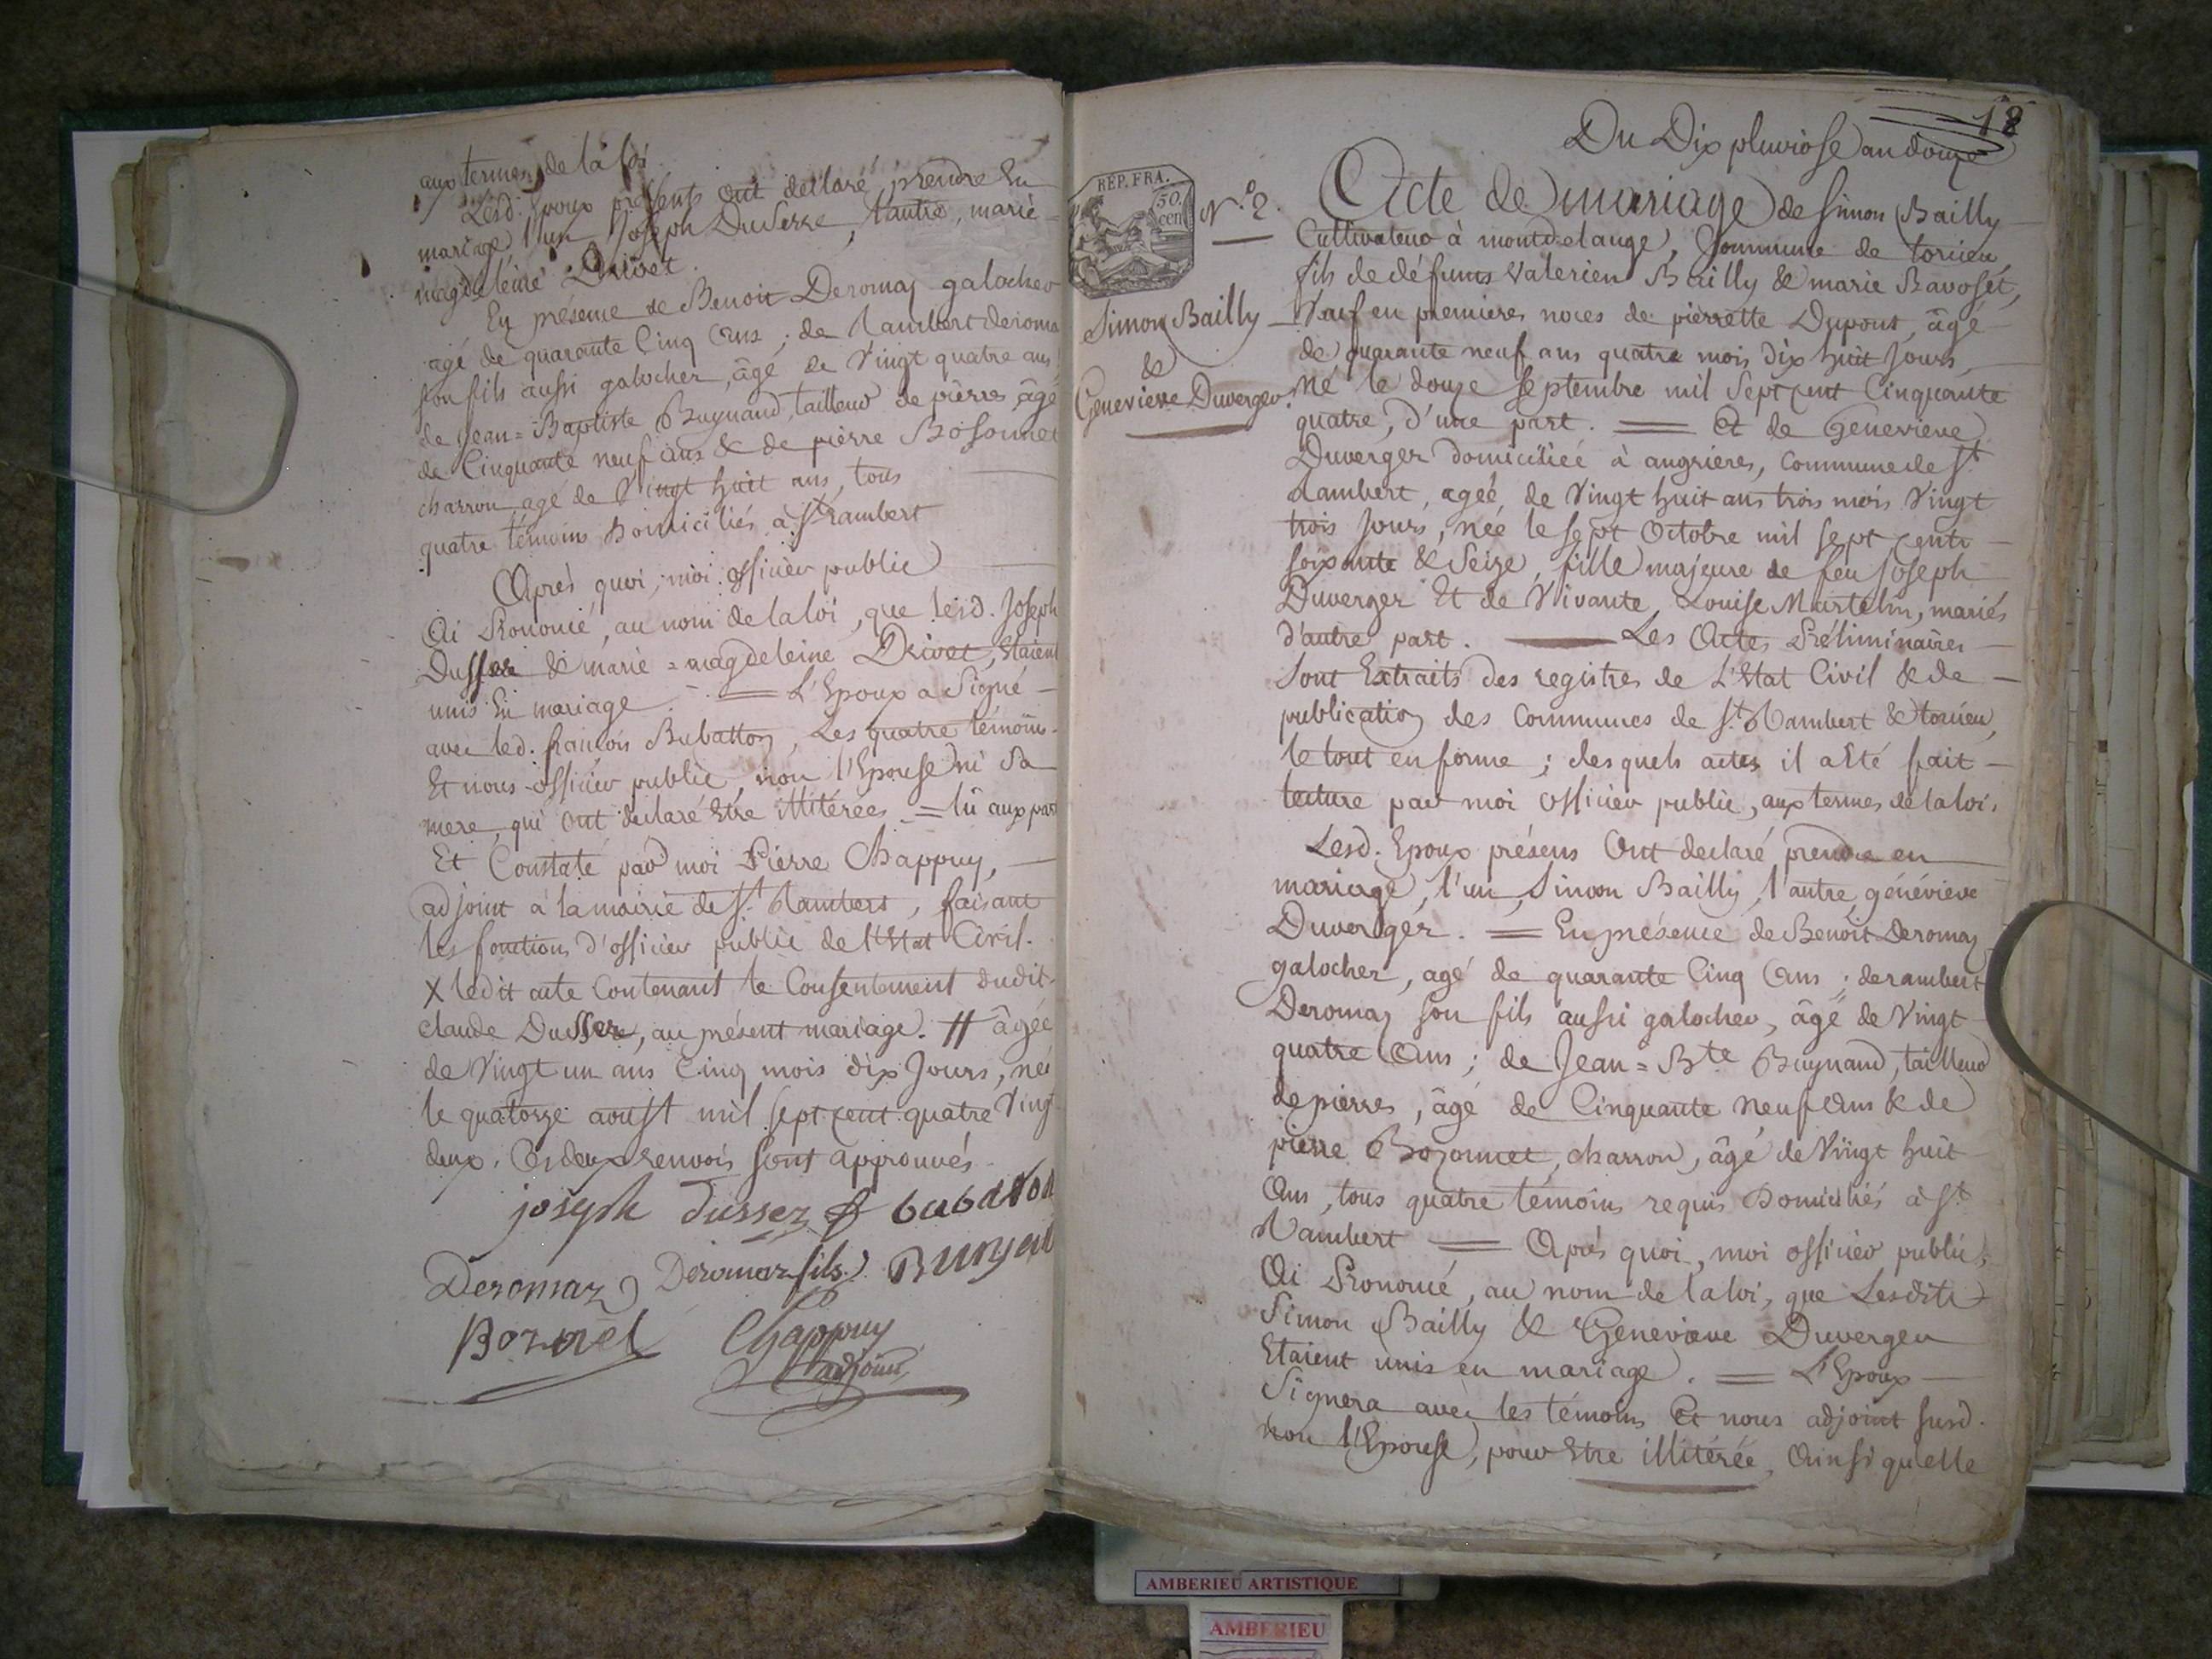 aux termes de la loi
Lesd. Epoux présents ont déclaré prendre En
mariage, l'un Joseph Duserre, l'autre, marie=
magdeleine Drivet.
En présence de Benoit Deromaz galocher
agé de quarante Cinq Ans; de Rambert deroma
son fils aussi galocher, âgé de Vingt quatre ans
de Jean=Baptiste Bugnand, tailleur de pierres âgé
de Cinquante neuf ans & de pierre Bosonnet
charron agé de Vingt huit ans, tous
quatre témoins Domiciliés à St. rambert
Après quoi, moi officier public
Ai Prononcé, au nom de la loi, que lesd. Joseph
Dusser & marie=magdeleine Drivet, Etaient
unis En mariage. = L'Epoux a Signé
avec led. françois Bubatton, Les quatre témoins
Et nous officier public, non l'Epouse ni Sa
mere, qui ont declaré Etre illitérées = lû aux part
Et Constaté par moi Pierre Chappuy,
adjoint à la mairie de St. Rambert, faisant
les fonctions d'officier public de l'Etat Civil.
X ledit acte Contenant le Consentement dudit
claude Dusser, au présent mariage. # âgée
de Vingt un ans Cinq mois dix Jours, née
le quatorze aoust mil sept cent quatre Vingt
deux. Ces deux renvois sont approuvés
joseph dusser f bubaton
Deromaz Deromaz fils Bunyat
Boznet Chappuy
adjoint
18
Du Dix pluviose an douze
REP. FRA.
50.
cen
N.o 2.
Simon Bailly
&
Genevieve Duverger
Acte de mariage de Simon Bailly
Cultivateur à montdelange, Commune de torcieu,
fils de défunts Valerien Bailly & marie Ravoset,
Vauf en premieres noces de pierrette Dupont, âgé
de quarante neuf ans quatre mois Dix huit Jours,
né le douze septembre mil sept cent Cinquante
quatre, d'une part. = Et de Genevieve
Duverger domiciliée à angrieres, commune de St.
Rambert, agée, de Vingt huit ans trois mois Vingt
trois Jours, née le sept Octobre mil sept cents
soixante & Seize, fille majeure de feu Joseph
Duverger Et de Vivante Louise Martelin, mariés
d'autre part. — Les Actes Préliminaires
Sont Extraits des registres de L'Etat Civil & de
publication des Communes de St. Rambert & torcieu,
le tout en forme; desquels actes il a Eté fait
lecture par moi officier public, aux termes de la loi.
Lesd. Epoux présens Ont declaré prendre en
mariage, l'un, Simon Bailly, l'autre, généviève
Duverger. = En présence de Benoit Deromaz
galocher, agé de quarante Cinq Ans; de rambert
Deromaz son fils aussi galocher, âgé de Vingt
quatre Ans; de Jean=Bte Bugnand, tailleur
de pierres, âgé de Cinquante neuf Ans & de
pierre Bozonnet, charron, âgé de Vingt huit
Ans, tous quatre témoins requis Domiciliés à St.
Rambert = Après quoi, moi officier public,
Ai Prononcé, au nom de la loi, que Lesdits
Simon Bailly & Genevieve Duverger
Etaient unis en mariage. = L'Epoux
Signera avec les témoins Et nous adjoint susd.
non l'Epouse, pour Etre illitérée, Ainsi qu'elle
AMBERIEU ARTISTIQUE
AMBERIEU